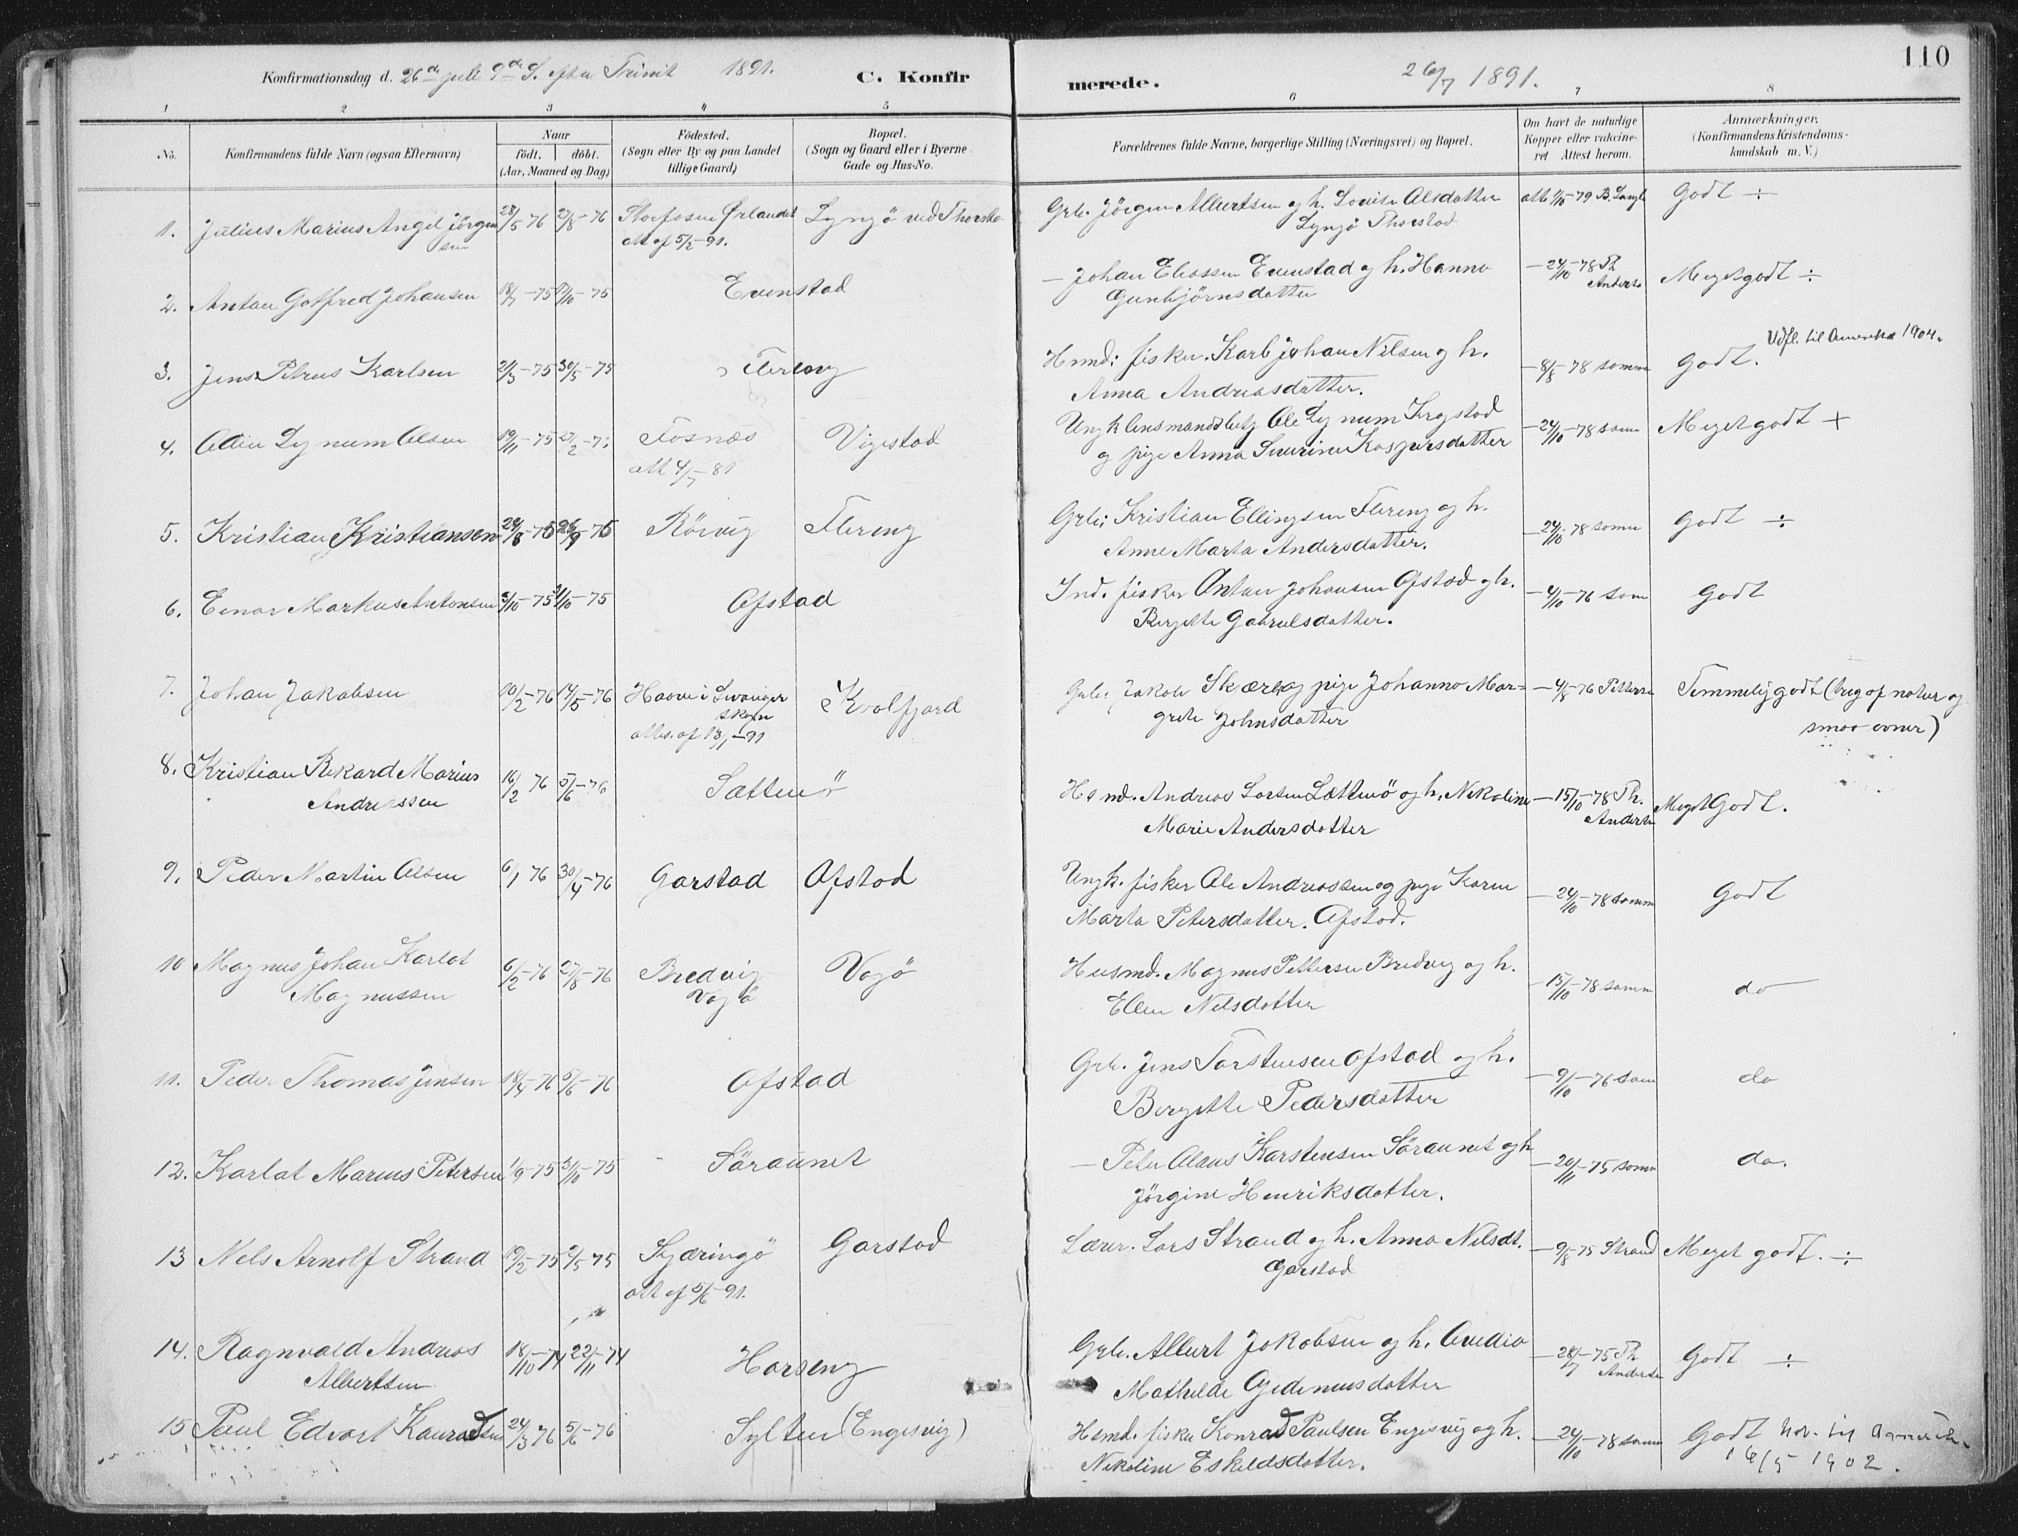 110
Konfirmationsdag d. 26de juli 9de S. efter Trinit 1891. C. Konfirmerede. 26/7 1891.
1 2 3 4 5 6 7 8
No. Konfirmandens fulde Navn (ogsaa Efternavn) Naar født. døbt. (Aar, Maaned og Dag) Fødested. (Sogn eller By og paa Landet tillige Gaard) Bopæl. (Sogn og Gaard eller i Byerne Gade og Hus-No.
Forældrenes fulde Navne, borgerlige Stilling (Næringsvei) og Bopæl. Om havt de naturlige Kopper eller vakcineret. Attest herom. Anmærkninger. (Konfirmandens Kristendomskundskab m. V.)
1. Julius Marius Angel Jørgensen 28/5 76 27/8-76 Storfosen Ørlandet Lyngø ved Thorstad Grb. Jørgen Albertsen og h. Lovise Olsdatter Godt ÷
att af 5/2-91. Lyngø Thorstad
2. Anton Gotfred Johansen 18/7-75 /10-75 Evenstad — Johan Eliassen Evenstad og h. Hanna Gunbjørnsdatter —24/10-78 Th Anders Meget godt ÷
3. Jens Petrus Karlsen 21/3-75 30/5-75 Flereng Hsmd: fisker. Karl Johan Nilsen og h. Anna Andreasdatter. —8/8-78 somm Godt. Udfl. til Amerika 1904.
4. Odin Lynum Olsen 19/11-75 27/2-7 Fosnæs Vigestad Ungk lensmandsbetj Ole Lynum Krogstad —24/10-78 som Meget godt +
att 4/7-81 og pige Anna Severine Kaspersdatter
5. Kristian Kristiansen 24/8-75 26/9-75 Rörvig Flereng Grb: Kristian Ellingsen Flereng og h. Anne Marta Andersdatter. —24/10-78 somm Godt ÷
6. Einar Markus Antonsen /10-75 /10-75 Ofstad Ind. fisker Anton Johansen Ofstad og h. Bergitte Gabrielsdatter. —4/10-76 som Godt
7. Johan Jakobsen 10/2-76 14/5-76 Haave i Levanger skogn Kvalfjord Grb. Jakob Skjærli og pige Johanna Margrete Johnsdatter —4/8-76 Petters Temmelig godt (treg af natur og smaa evner)
atts. af 13/1-91
8. Kristian Rikard Marius Andreassen 16/2 76 5/6-76 Sættenö Hsmd. Andreas Larsen Sættenö og h. Nikoline Marie Andersdatter —15/10-78 Th. Anders Meget Godt.
9. Peder Martin Olsen 6/1 76 30/4-76 Garstad Ofstad Ungk. fisker Ole Andreassen og pige Karen Marta Petersdatter. Ofstad. —24/10-78 somm Godt
10 Magnus Johan Karlot Magnussen 6/2-76 27/8-76 Bredvig Vegö Vegö Husmd. Magnus Pettersen Bredvig og h. Ellen Nilsdatter —15/10-78 somm do
11. Peder Thomas Jensen 18/4-76 5/6-76 Ofstad Grb. Jens Torstensen Ofstad og h. Bergitte Pedersdatter —9/10-76 som do
12. Karlot Marius Petersen 1/9-75 3/10-75 Söraunet — Peter Olaus Karstensen Söraunet og h Jörgine Henriksdatter. —20/11-75 somm do.
13 Nels Arnolf Strand 19/2-75 2/5-75 Kjæringö Garstad Lærer. Lars Strand og h. Anna Nilsdt. Garstad —9/8-75 Strand Meget godt. ÷
att af 5/6-91.
14. Ragnvald Andreas Albertsen 18/10-74 22/11-74 Horseng Grb. Albert Jakobsen og h. Ovedia Mathilde Gedemusdatter —28/7-75 Th Anders Godt ÷
15 Paul Edvart Konradsen 24/3 76 5/6-76 Sylten (Engesvig) Hsmd. fisker Konrad Paulsen Engesvig og h. Nikoline Eskildsdatter. —24/10-78 somm Godt
16/5 1902.